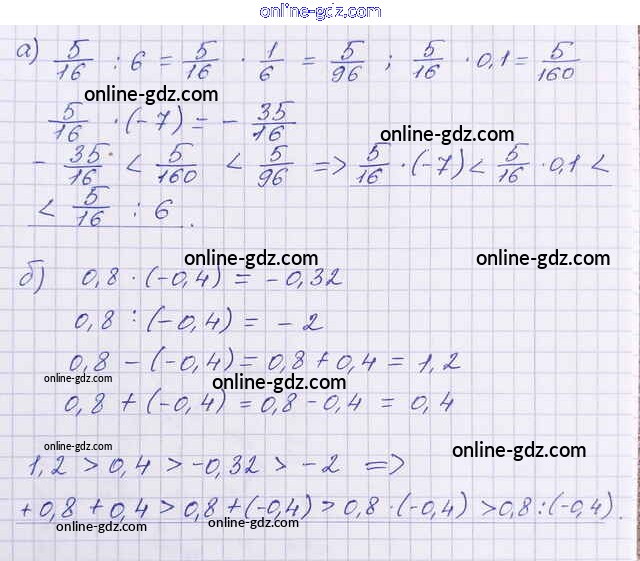 online-gdz.com
а) 5/16 : 6 = 5/16 · 1/6 = 5/96 ; 5/16 · 0,1 = 5/160
online-gdz.com
5/16 · (-7) = - 35/16
online-gdz.com
- 35/16 < 5/160 < 5/96 => 5/16 · (-7) < 5/16 · 0,1 <
< 5/16 : 6 .
online-gdz.com online-gdz.com
б) 0,8 · (-0,4) = -0,32
0,8 : (-0,4) = -2
0,8 - (-0,4) = 0,8 + 0,4 = 1,2
online-gdz.com online-gdz.com
0,8 + (-0,4) = 0,8 - 0,4 = 0,4
online-gdz.com online-gdz.com
1,2 > 0,4 > -0,32 > -2 =>
+ 0,8 + 0,4 > 0,8 + (-0,4) > 0,8 · (-0,4) > 0,8 : (-0,4) .
online-gdz.com online-gdz.com